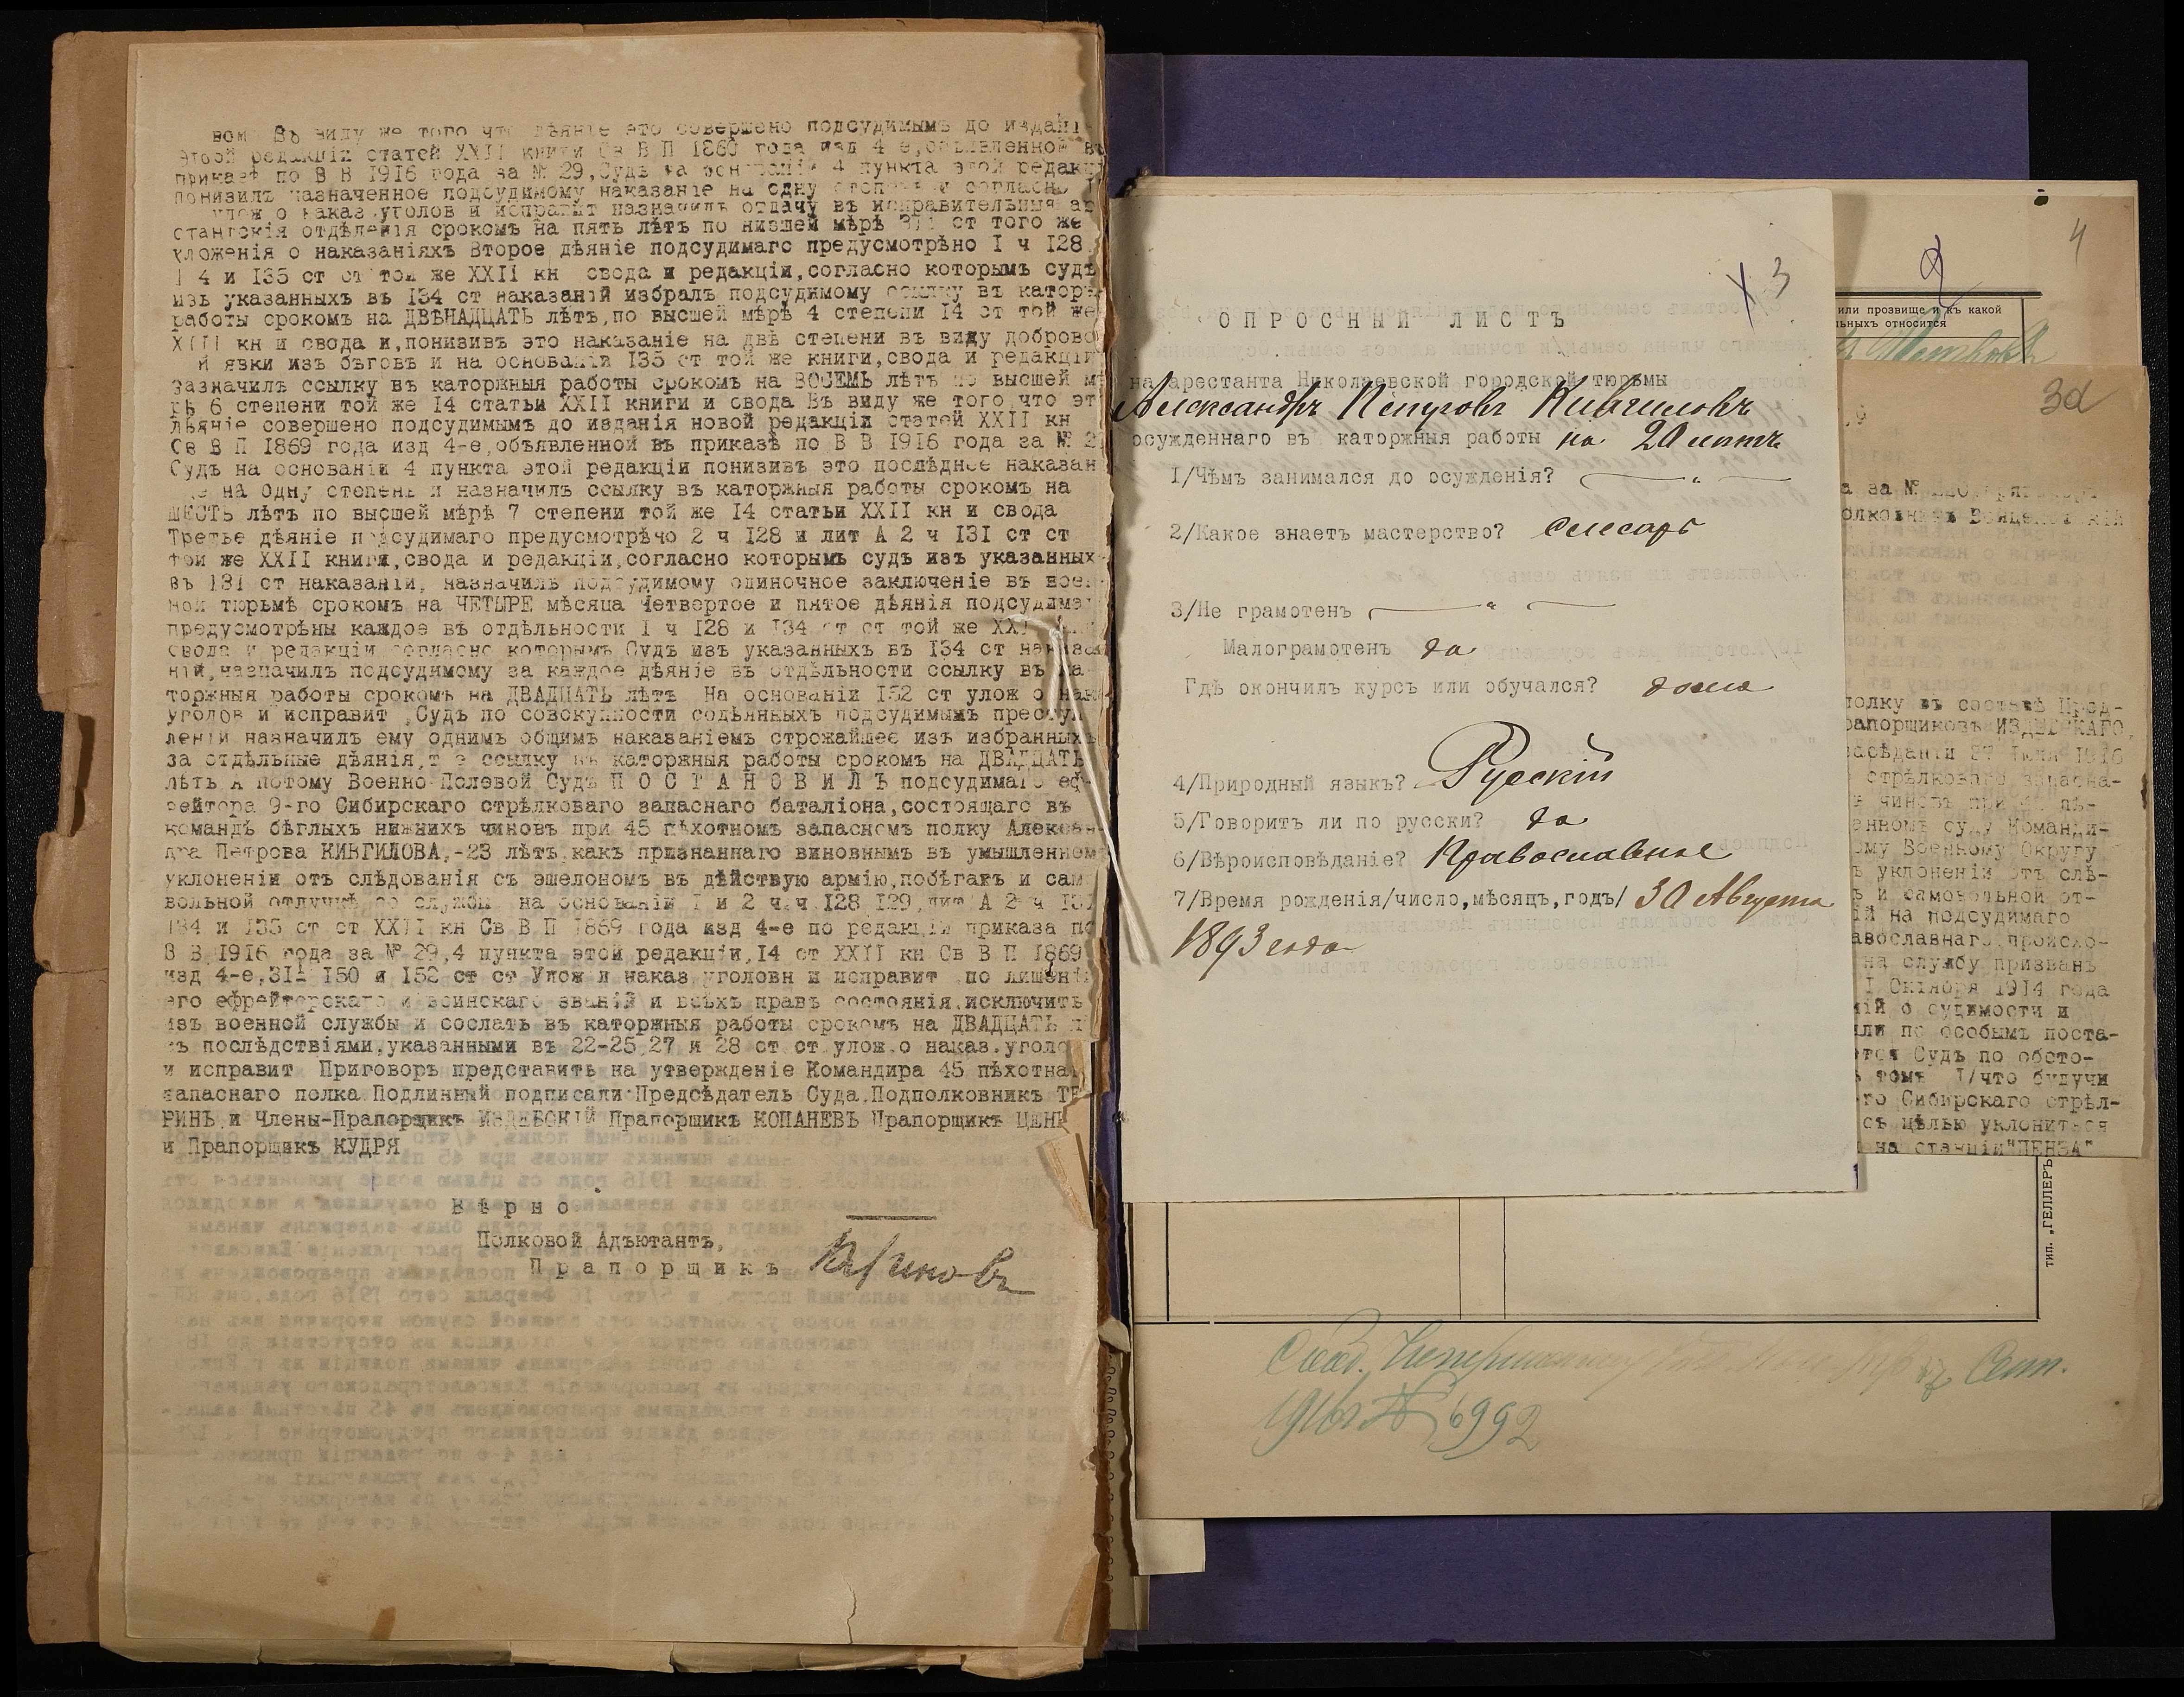 вом Въ виду же того что дѣяніе это совершено подсудимымъ до издані
этой редакціи статей XXII книги Св В П 1869 года изд 4-е, объявленной въ
приказѣ по В В 1916 года за № 29, Судъ на основаніи 4 пункта этой редакц
понизилъ назначенное подсудимому наказаніе на одну степень и согласно
улож о наказ уголов и исправит назначилъ отдачу въ исправительныя ар
стантскія отдѣленія срокомъ на пять лѣтъ по низшей мѣрѣ ст того же
уложенія о наказаніяхъ Второе дѣяніе подсудимаго предусмотрѣно I ч I28
I 4 и I35 ст ст той же XXII кн свода и редакціи, согласно которымъ судъ
изъ указанныхъ въ I34 ст наказаній избралъ подсудимому ссылку въ каторж
работы срокомъ на ДВѢНАДЦАТЬ лѣтъ, по высшей мѣрѣ 4 степени I4 ст той же
XXII кн и свода и, понизивъ это наказаніе на двѣ степени въ виду доброво
й явки изъ бѣговъ и на основаніи I35 ст той же книги, свода и редакціи
назначилъ ссылку въ каторжныя работы срокомъ на ВОСЕМЬ лѣтъ по высшей м
рѣ 6 степени той же I4 статьи XXII книги и свода Въ виду же того, что эт
дѣяніе совершено подсудимымъ до изданія новой редакціи статей XXII кн
Св В П 1869 года изд 4-е, объявленной въ приказѣ по В В 1916 года за № 2
Судъ на основаніи 4 пункта этой редакціи понизивъ это послѣднее наказан
е на одну степень и назначилъ ссылку въ каторжныя работы срокомъ на
ШЕСТЬ лѣтъ по высшей мѣрѣ 7 степени той же I4 статьи XXII кн и свода
Третье дѣяніе подсудимаго предусмотрѣно 2 ч I28 и лит А 2 ч I3I ст ст
той же XXII книги, свода и редакціи, согласно которымъ судъ изъ указанныхъ
въ I3I ст наказаній, назначилъ подсудимому одиночное заключеніе въ воен
ной тюрьмѣ срокомъ на ЧЕТЫРЕ мѣсяца Четвертое и пятое дѣянія подсудимаг
предусмотрѣны каждое въ отдѣльности I ч I28 и I34 ст ст той же XXI
свода и редакціи согласно которымъ Судъ изъ указанныхъ въ I34 ст наказа
ній, назначилъ подсудимому за каждое дѣяніе въ отдѣльности ссылку въ ка-
торжныя работы срокомъ на ДВАДЦАТЬ лѣтъ На основаніи I52 ст улож о нак
уголов и исправит , Судъ по совокупности содѣянныхъ подсудимымъ преступ
леній назначилъ ему однимъ общимъ наказаніемъ строжайшее изъ избранныхъ
за отдѣльные дѣянія, т е ссылку въ каторжныя работы срокомъ на ДВАДЦАТЬ
лѣтъ А потому Военно-Полевой Судъ П О С Т А Н О В И Л Ъ подсудимаго еф-
рейтора 9-го Сибирскаго стрѣлковаго запаснаго баталіона, состоящаго въ
командѣ бѣглыхъ нижнихъ чиновъ при 45 пѣхотномъ запасномъ полку Алексан
дра Петрова КИВГИЛОВА,-23 лѣтъ, какъ признаннаго виновнымъ въ умышленном
уклоненіи отъ слѣдованія съ эшелономъ въ дѣйствую армію, побѣгахъ и сам
вольной отлучкѣ со службы на основаніи I и 2 ч ч I28 I29, лит А 2 ч I3
I34 и I35 ст ст XXII кн Св В П 1869 года изд 4-е по редакціи приказа по
В В 1916 года за № 29, 4 пункта этой редакціи, I4 ст XXII кн Св В П 1869
изд 4-е, 31 I50 и I52 ст ст Улож и наказ уголовн и исправит по лишені
его ефрейторскаго и воинскаго званій и всѣхъ правъ состоянія, исключить
изъ военной службы и сослать въ каторжныя работы срокомъ на ДВАДЦАТЬ л
съ послѣдствіями, указанными въ 22-25, 27 и 28 ст ст улож.о наказ.уголо
и исправит Приговоръ представить на утвержденіе Командира 45 пѣхотна
запаснаго полка Подлинный подписали Предсѣдатель Суда Подполковникъ ТЕ
РИНЪ, и Члены-Прапорщикъ ИЗДЕБСКІЙ Прапорщикъ КОПАНЕВЪ Прапорщикъ ЦЕН
и Прапорщикъ КУДРЯ
Вѣрно
Полковой Адъютантъ,
П р а п о р щ и к ъ
Х 3
О П Р О С Н Ы Й Л И С Т Ъ
на арестанта Николаевской городской тюрьмы
Александръ Петровъ Кивгиловъ
осужденнаго въ каторжныя работы на 20 лѣтъ
I/Чѣмъ занимался до осужденія? — " —
2/Какое знаетъ мастерство? Слесарь
3/Не грамотенъ — " —
Малограмотенъ да
Гдѣ окончилъ курсъ или обучался? дома
4/Природный языкъ? Русскій
5/Говоритъ ли по русски? да
6/Вѣроисповѣданіе? Православное
7/Время рожденія/число, мѣсяцъ, годъ/ 30 Августа
1893 года
4
2
или прозвище и къ какой
льныхъ относится
3а
а за №
полку въ составѣ Пред-
рапорщиковъ ИЗДЕБСКАГО,
засѣданіи 27 Іюля 1916
стрѣлковаго запасна-
ъ чиновъ при 45 пѣ-
енномъ суду Команди-
ому Военному Округу
ъ уклоненіи отъ слѣ-
ъ и самовольной от-
ій на подсудимаго
авославнаго, происхо-
на службу призванъ
I Октября 1914 года
ній о судимости и
или по особымъ поста-
ются Судъ по обсто-
ъ томъ I/что будучи
го Сибирскаго стрѣл-
съ цѣлью уклониться
на станціи"ПЕНЗА"
тип. „ГЕЛЛЕРЪ
Сент.
1916 г № 6992